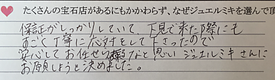 たくさんの宝石店があるにもかかわらず、なぜジュエルミキを選んで頂
保証がしっかりしていて 下見で来た際にも
すごく丁寧に応対をして下さったので
安心してお任せできると思いジュエルミキさんに
お願いしようと決めました。